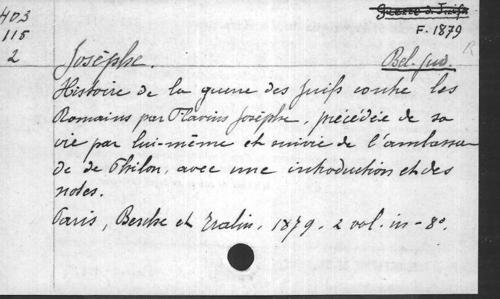 403
115
2
Guerre d. Juifs
F. 1879
Josèphe.
Bel. Jud.
Histoire de la guerre des Juifs contre les
Romains par Flavius Josèphe, précédée de sa
vie par lui-même et suivie de l'ambassa
de de Philon, avec une introduction et des
notes.
Paris, Berche et Tralin, 1879. 2 vol. in-8°.